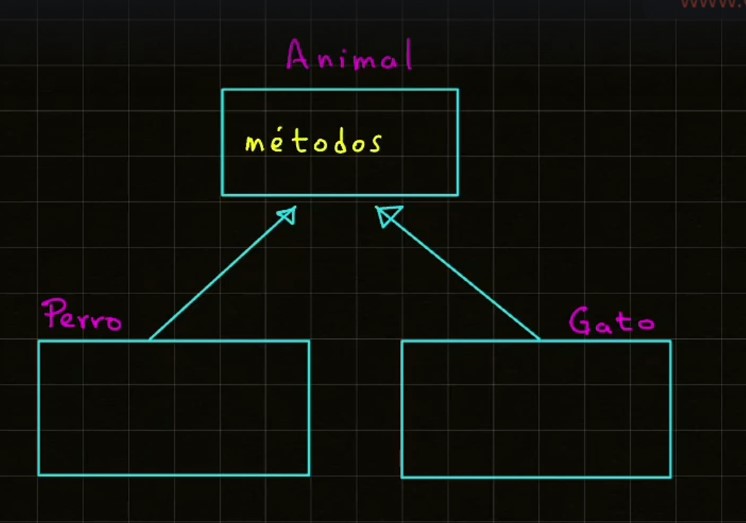 www.
Animal
métodos
Perro
Gato